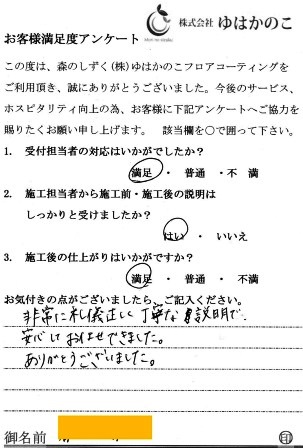 mori-no-sizuku
株式会社 ゆはかのこ
お客様満足度アンケート
この度は、森のしずく(株)ゆはかのこフロアコーティングを
ご利用頂き、誠にありがとうございました。今後のサービス、
ホスピタリティ向上の為、お客様に下記アンケートへご協力を
賜りたくお願い申し上げます。 該当欄を○で囲って下さい。
1. 受付担当者の対応はいかがでしたか？
満足 ・ 普通 ・ 不満
2. 施工担当者から施工前・施工後の説明は
しっかりと受けましたか？
はい ・ いいえ
3. 施工後の仕上がりはいかがですか？
満足 ・ 普通 ・ 不満
お気付きの点がございましたら、ご記入ください。
非常に礼儀正しく丁寧な説明で、
安心しておまかせできました。
ありがとうございました。
御名前 ㊞